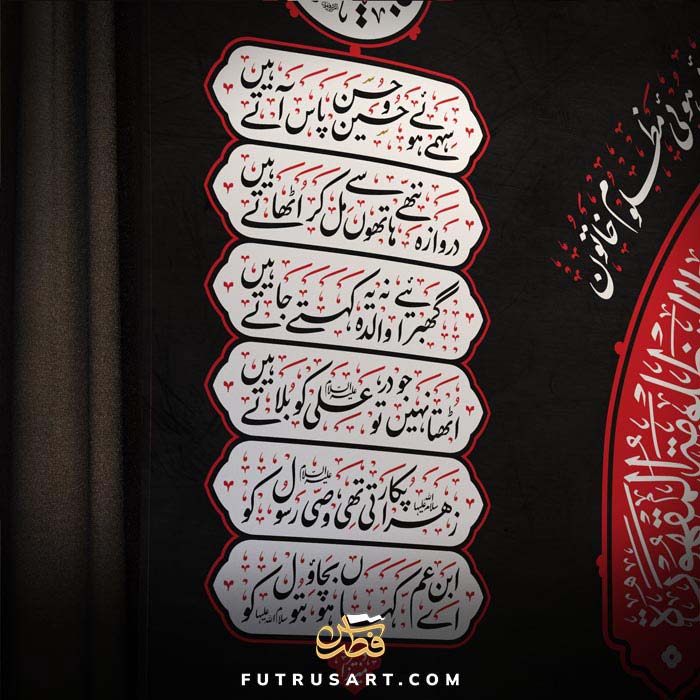 سہمے ہوئے حسین و حسن پاس آتے ہیں
دروازہ ننھے ہاتھوں سے مل کر اٹھاتے ہیں
گھبرائیے نہ والدہ یہ کہتے جاتے ہیں
اٹھتا نہیں جو در تو علی علیہ السلام کو بلاتے ہیں
زھرا سلام اللہ علیہا پکارتی تھی وصی رسول علیہ السلام کو
اے ابن عم کہاں ہو بچاؤ بتول سلام اللہ علیہا کو
ہوئی مظلوم خاتون
المقهورة
فطرس
FUTRUSART.COM